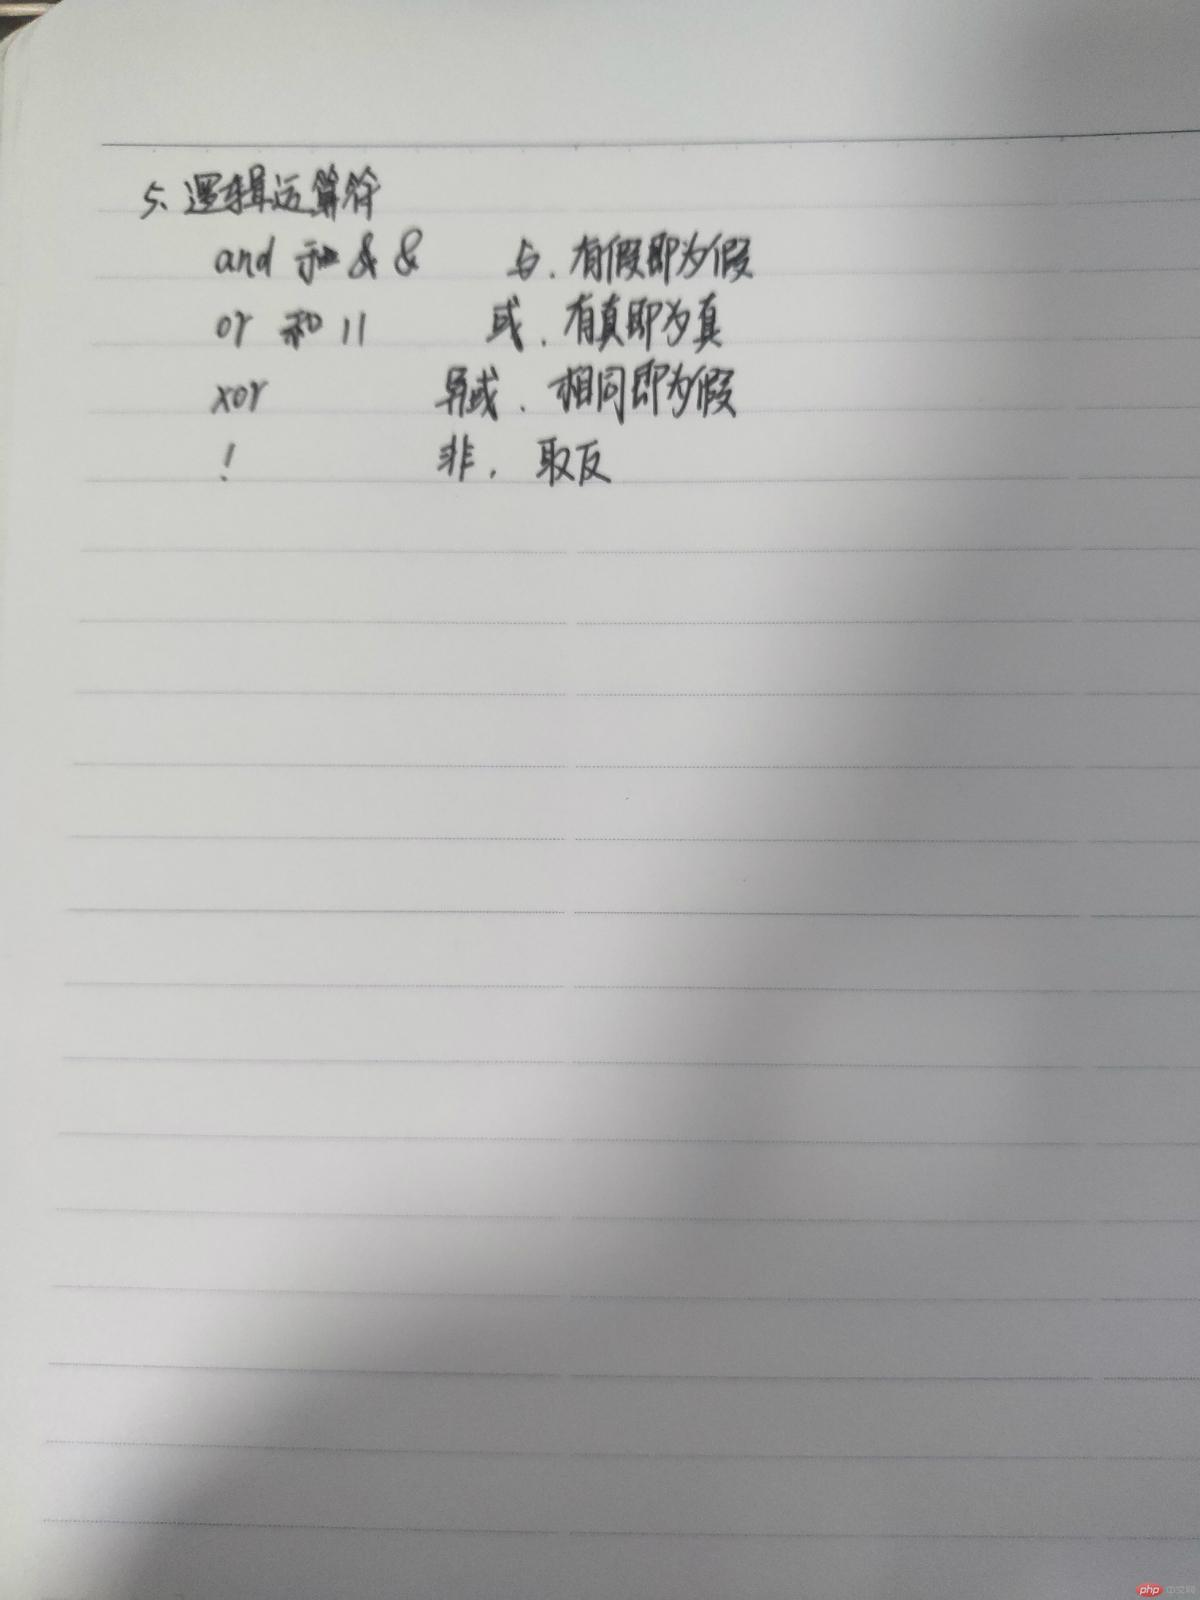 5、逻辑运算符
and 和 && 与. 有假即为假
or 和 || 或. 有真即为真
xor 异或. 相同即为假
! 非. 取反
php 中文网